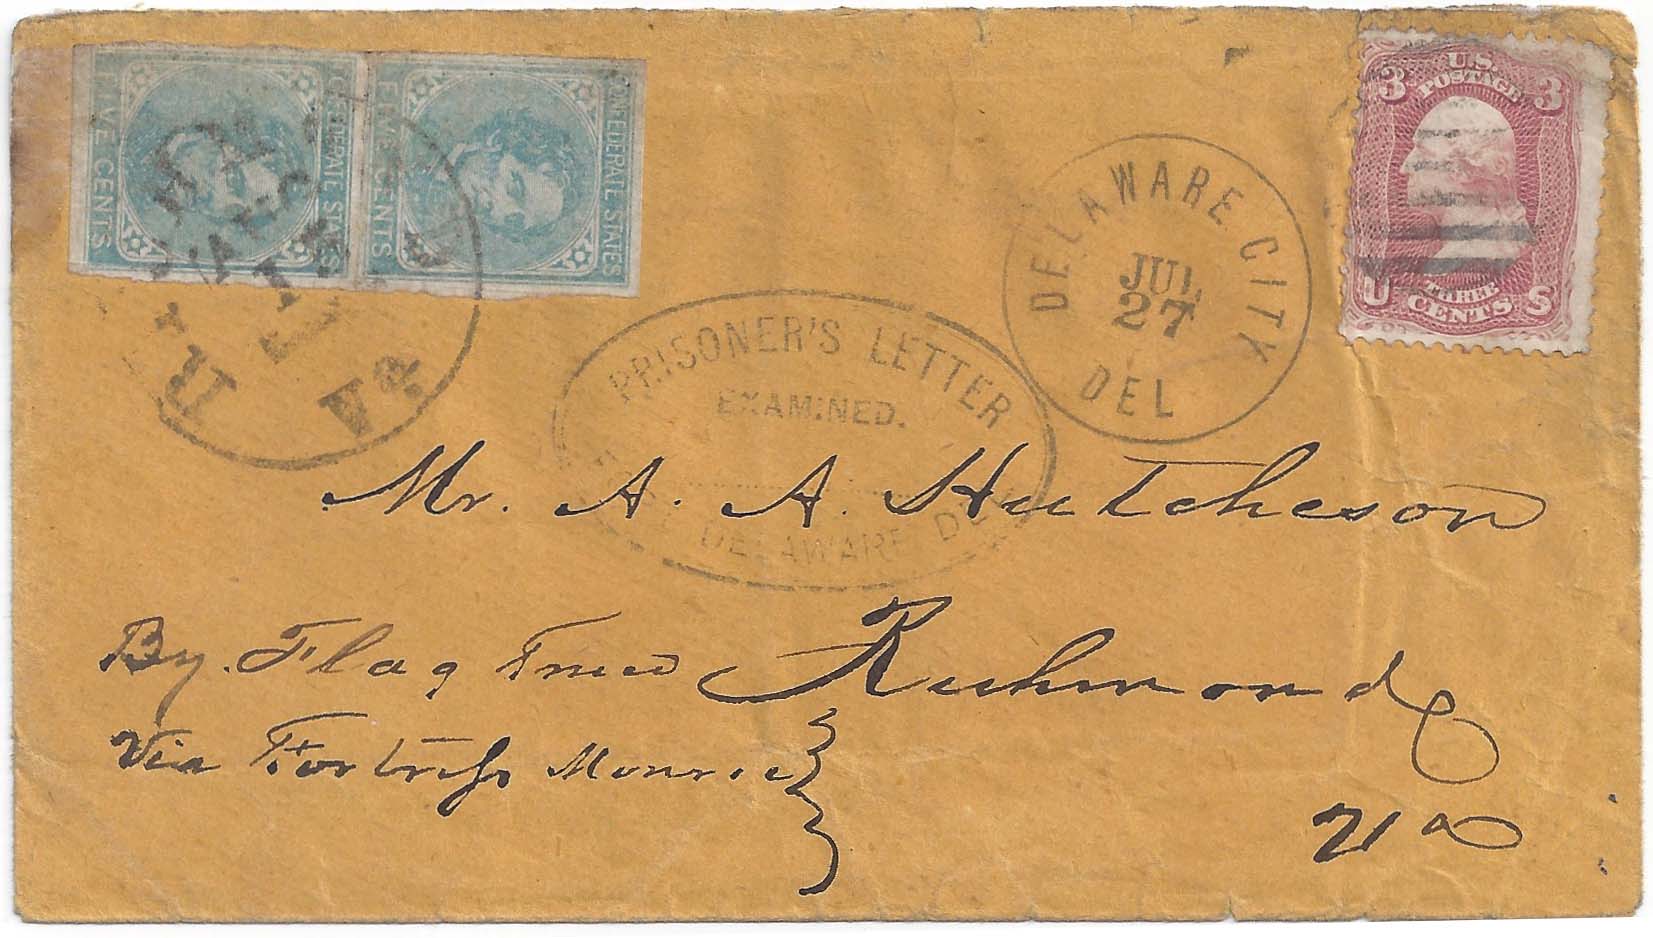 FIVE CENTS
CONFEDERATE STATES
FIVE CENTS
CONFEDERATE STATES
U.S. POSTAGE
3 3
U THREE S
CENTS
DELAWARE CITY
JUL
27
DEL
PRISONER'S LETTER
EXAMINED.
DELAWARE DEL
Va
Mr. A. A. Hutcheson
By. Flag Truce Richmond
Via Fortress Monroe
Va